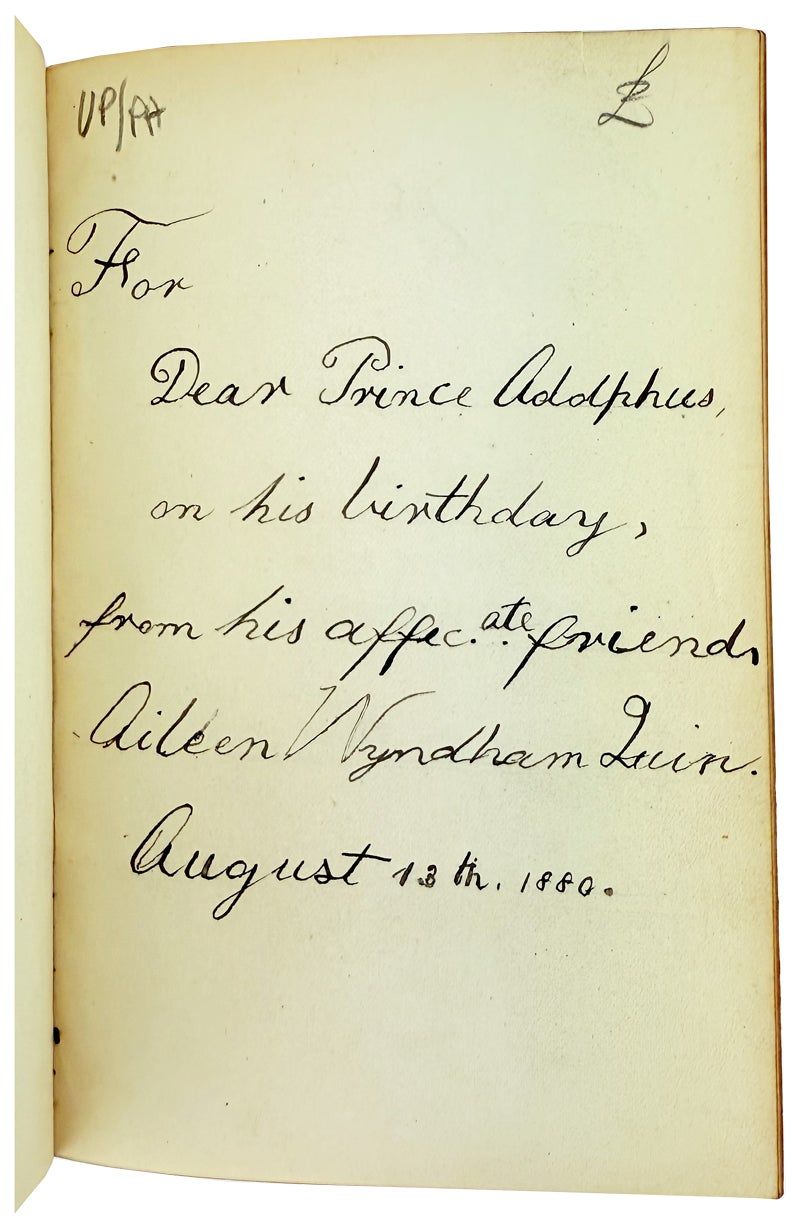 UP/PH £
For
Dear Prince Adolphus,
on his birthday,
from his affec.ate friend,
Aileen Wyndham Quin.
August 13th. 1880.